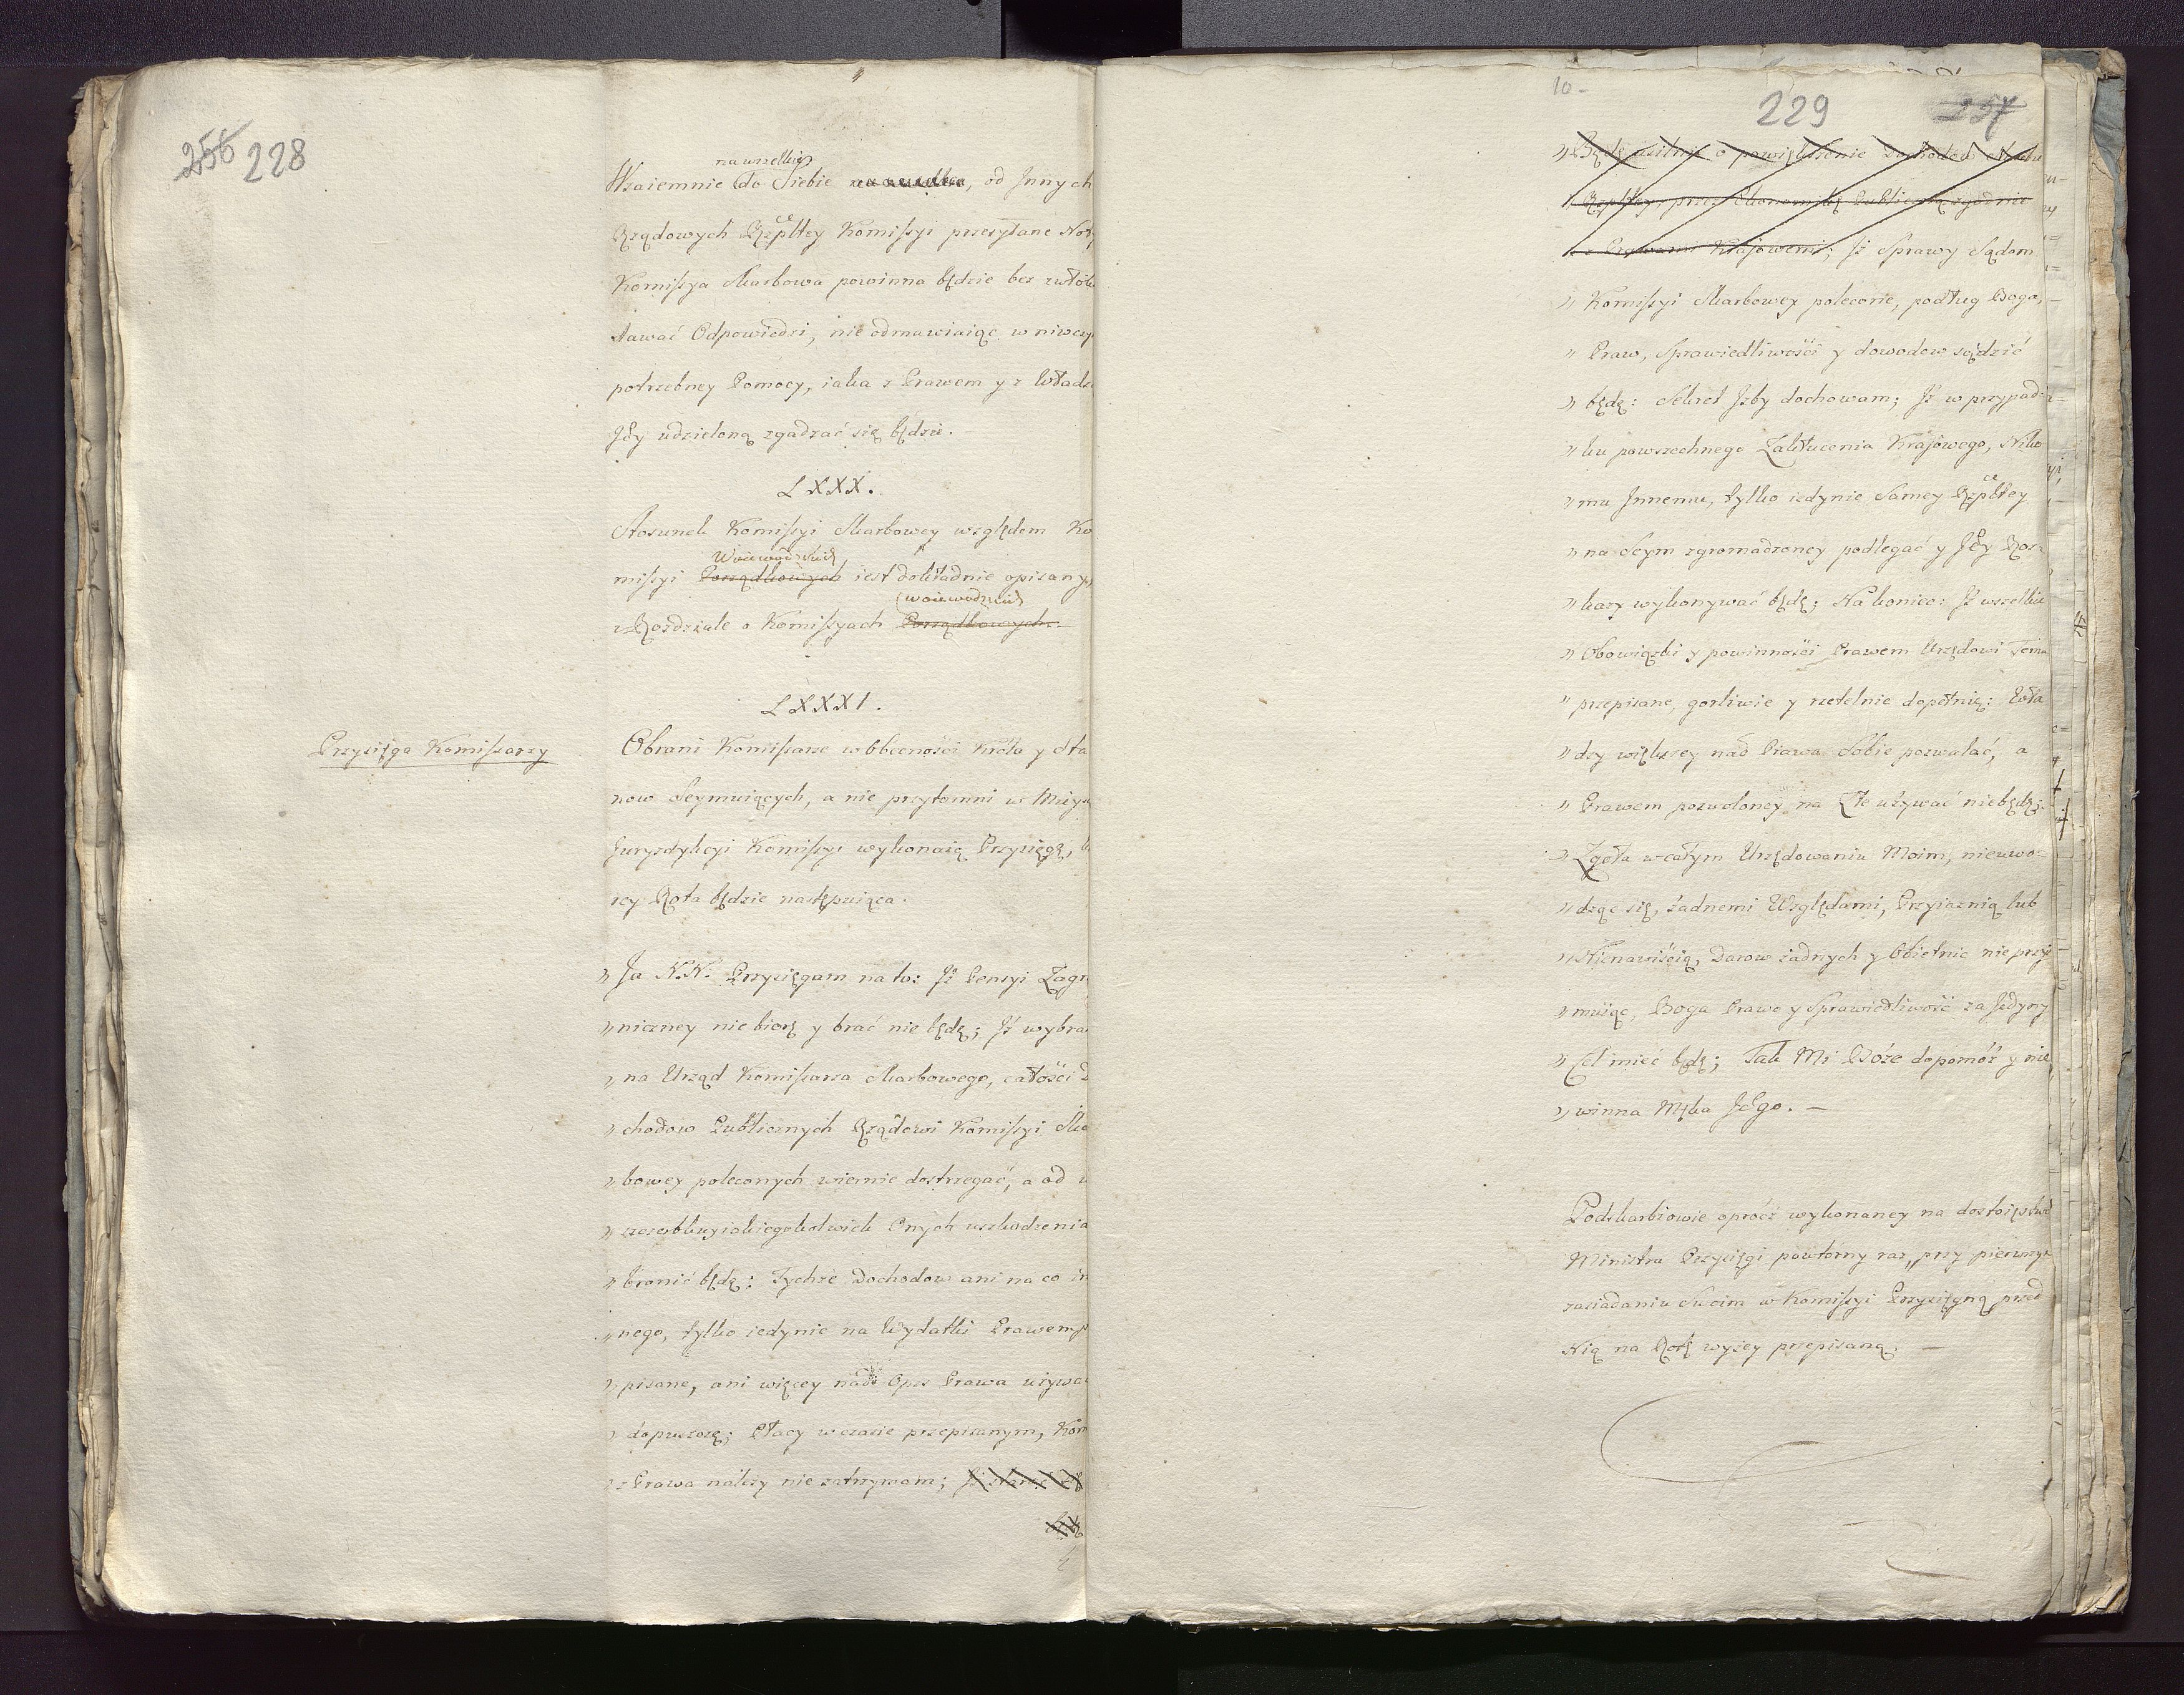 256 228
na wszelkie
Wzaiemnie do Siebie, od Innych
Rządowych Rzpltey Komißyi przesyłane Not
Komißya Skarbowa powinna będzie bez zwłoki
dawać Odpowiedzi, nie odmawiaiąc w niwczy
potrzebney Pomocy, iaka z Prawem y z Władz
Jey udzieloną zgadzać się będzie.
LXXX.
Stosunek Komißyi Skarbowey względem Ko
Woiewodzkich
mißyi Porządkowych iest dokładnie opisany,
woiewodzkich
w Rozdziale o Komißyach Porządkowych.
LXXXI.
Przysięga Komißarzy
Obrani Komißarze w obecności Króla y Sta
now Seymuiących, a nie przytomni w Mieysc
Juryzdykcyi Komißyi wykonaią Przysięgę, k
rey Rota będzie następuiąca.
„ Ja N.N. Przysięgam na to: Iż Pensyi Zagr
„ niczney nie biorę y brać nie będę; Iż wybra
„ na Urząd Komißarza Skarbowego, całości D
„ chodow Publicznych Rządowi Komißyi Ska
„ bowey poleconych wiernie dostrzegać, a od u
„ szczerbku y iakiegokolwiek Onych uszkodzenia
„ bronić będę: Tychże Dochodow ani na co in
„ nego, tylko iedynie na Wydatki Prawem p
„ pisane, ani więcey nad Opis Prawa używa
„ dopuszczę; Płacy w czasie przepisanym, kom
„ z Prawa należy nie zatrzymam; Iż starać się
będę
10-
229 257
„ Będę usilnie o powiększenie Dochodow Skarbu
„ Rzpltey przez Ekonomikę Publiczną zgodnie
„ z Prawami Krajowemi; Iż Sprawy Sądom
„ Komißyi Skarbowey polecone, podług Boga,
„ Praw, Sprawiedliwości y dowodow sądzić
„ będę: Sekret Izby dochowam; Iż w przypad-
„ ku powszechnego Zakłucenia Krajowego, Niko
„ mu Innemu, tylko iedynie Samey Rzpltey
„ na Seym zgromadzoney podlegać y Jey Roz-
„ kazy wykonywać będę; Nakoniec: Iż wszelkie
„ Obowiązki y powinności Prawem Urzędowi Temu
„ przepisane, gorliwie y rzetelnie dopełnię: Wła
„ dzy większey nad Prawa Sobie pozwalać, a
„ Prawem pozwoloney na Złe używać niebędę;
„ Zgoła w całym Urzędowaniu Moim, nieuwo-
„ dząc się, żadnemi Względami, Przyiaznią lub
„ Nienawiścią, Darow żadnych y Obietnic nie przy
„ muiąc, Boga Prawo y Sprawiedliwość za Jedyny
„ Cel mieć będę; Tak Mi Boże dopomóż y nie
„ winna Męka Jego. —
Podskarbiowie oprócz wykonaney na dostoięństwo
Ministra Przysięgi powtórny raz, przy pierwszym
zasiadaniu Swoim w Komißyi Przysięgną przed
Nią na Rotę wyżey przepisaną. —